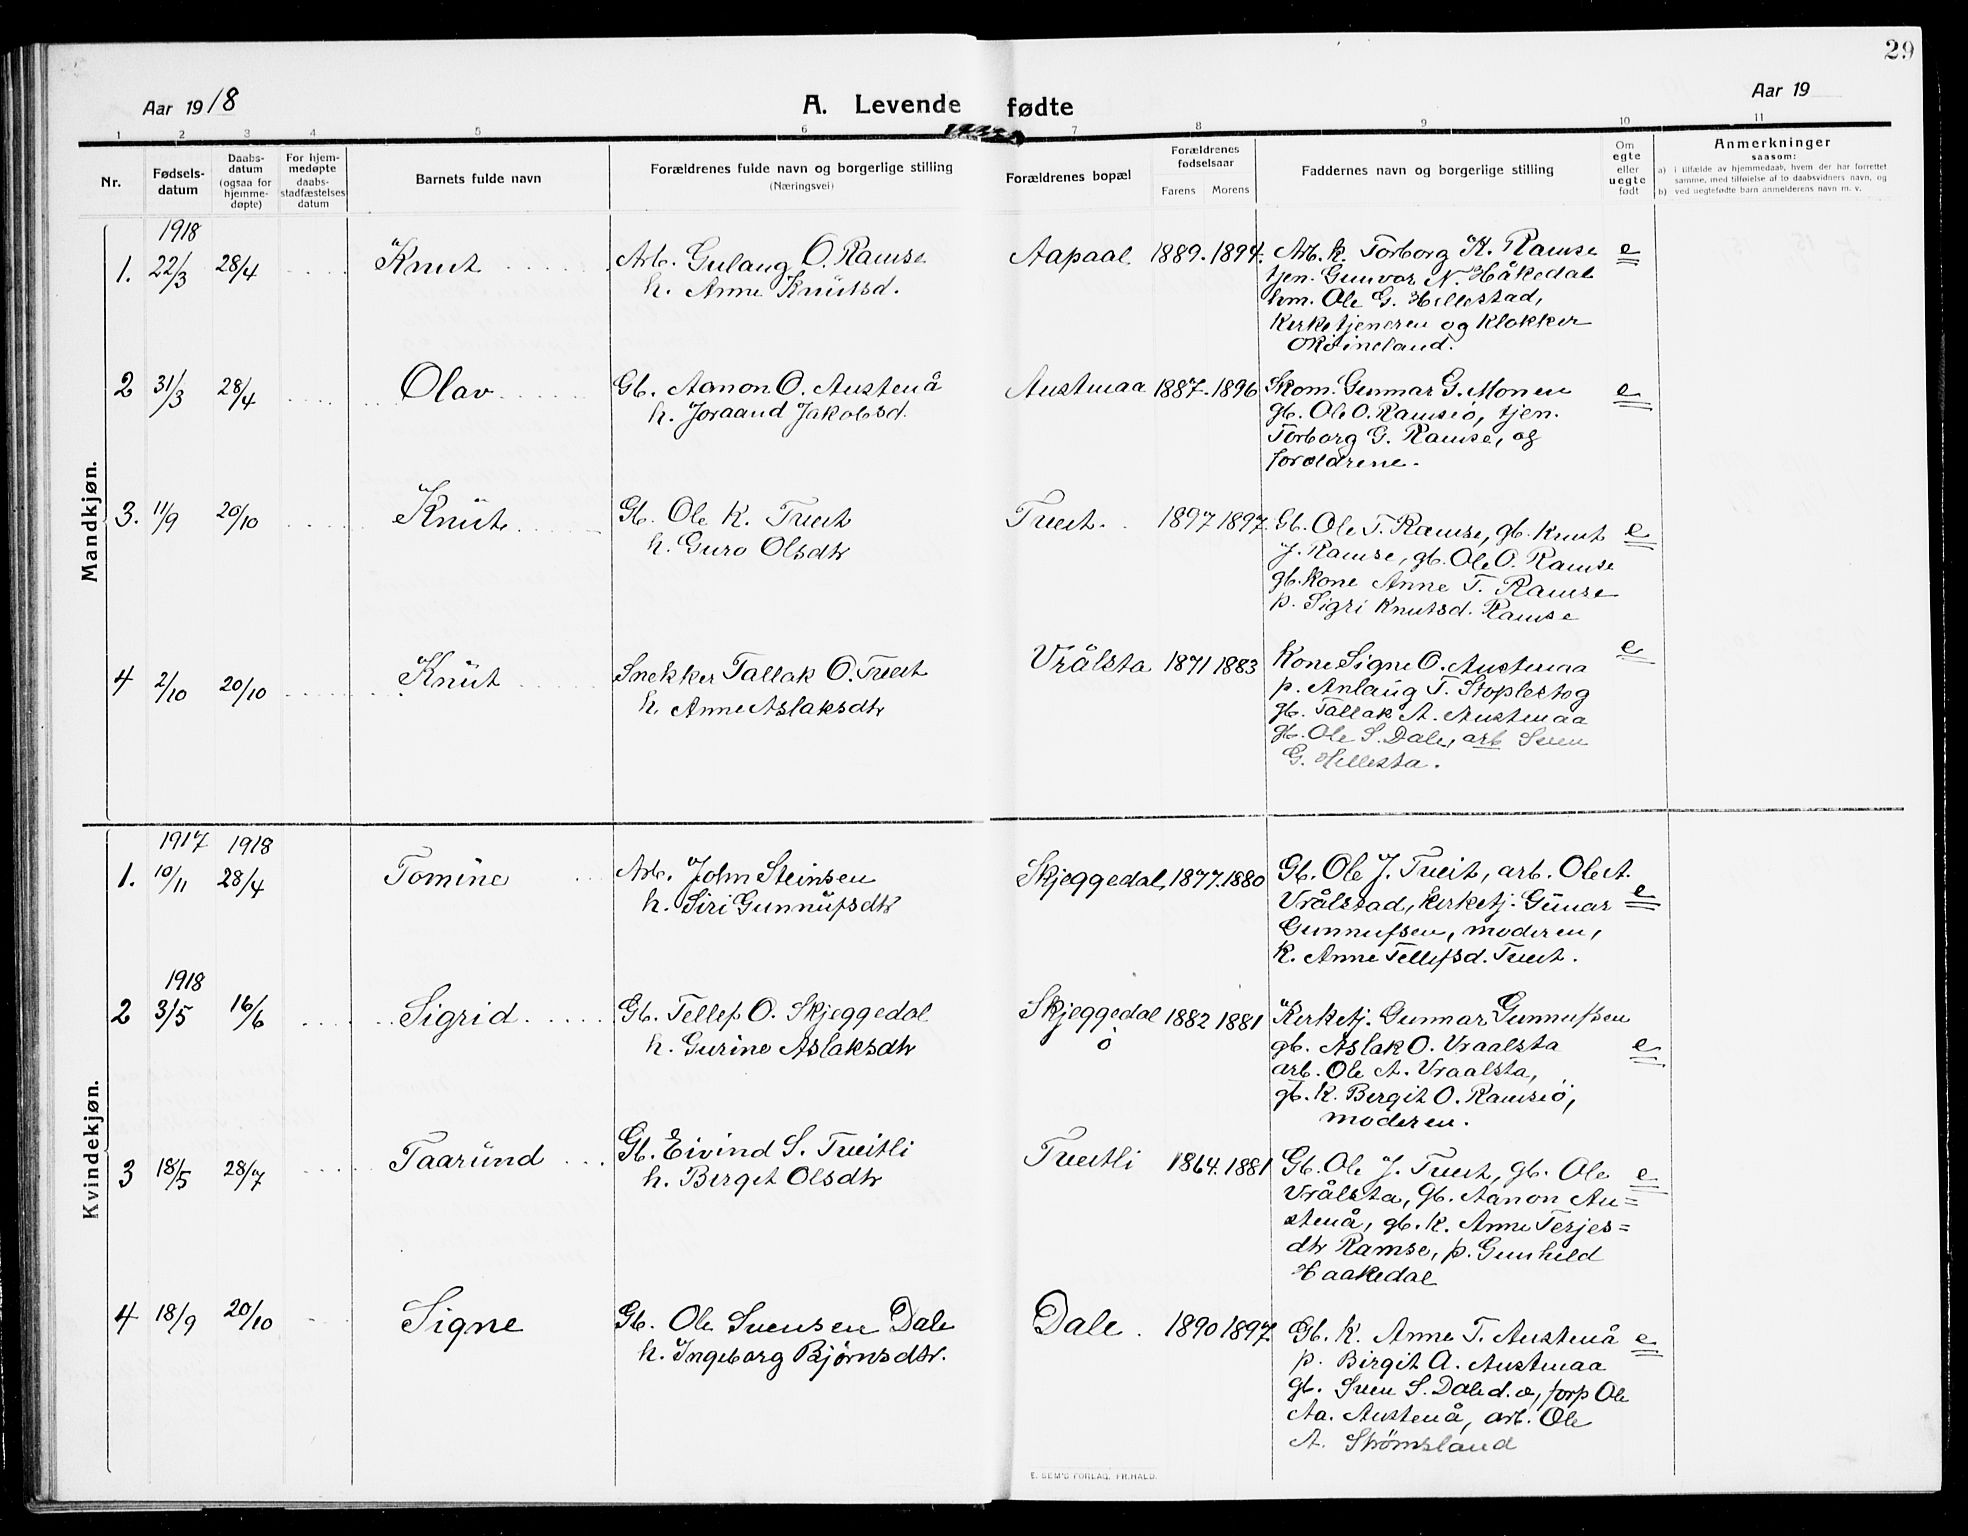 29
Aar 1918
A. Levende fødte
Aar 19
1 2 3 4 5 6 7 8 9 10 11
Nr.
Fødsels-
datum
Daabs-
datum
(ogsaa for
hjemme-
døpte)
For hjem-
medøpte
daabs-
stadfæstelses
datum
Barnets fulde navn
Forældrenes fulde navn og borgerlige stilling
(Næringsvei)
Forældrenes bopæl
Forældrenes
fødselsaar
Farens Morens
Faddernes navn og borgerlige stilling
Om
egte
eller
uegte
født
Anmerkninger
saasom:
a) i tilfælde av hjemmedaab, hvem der har forrettet
samme, med tilføielse af to daabsvidners navn, og
b) ved uegtefødte barn anmelderens navn m. v.
Mandkjøn.
1918
1. 22/3 28/4 Knut Arb. Gulaug O. Ramse Aapaal 1889. 1894. Arb. k. Torborg K. Ramse e
h. Anne Knutsd. tjen. Gunvor N. Håkedal
Ole G. Hillestad,
Kirketjeneren og klokker
2 31/3 28/4 Olav Gb. Aanon O. Austenå Austenaa 1887. 1896 Skom. Gunnar G. Monen e
h. Joraand Jakobsd. gb. Ole O. Ramseiø, tjen.
Torborg G. Ramse, og
forældrene.
3. 11/9 20/10 Knut Gb. Ole K. Tveit Tveit. 1897 1897. Gb. Ole T. Ramse, gb. Knut e
h. Guro Olsdtr J. Ramse, gb. Ole O. Ramse
gb. kone Anne T. Ramse
p. Sigri Knutsd. Ramse
4 2/10 20/10 Knut Snekker Tallak O. Tveit Vrålsta 1871 1883 Kone Signe O. Austenaa e
h. Anne Aslaksdtr p. Anlaug T. Stoplestog
gb. Tallak A. Austenaa
gb. Ole S. Dale, arb Sven
G. Hillesta.
Kvindekjøn.
1917 1918
1. 10/11 28/4 Tomine Arb. John Steinsen Skjeggedal 1877. 1880 Gb. Ole J. Tveit, arb. Ole A.
h. Siri Gunnufsdtr Vrålstad, kirketj. Gunar e
Gunnufsen, moderen,
k. Anne Tellefsd. Tveit.
1918
2 3/5 16/6 Sigrid Gb. Tellef O. Skjeggedal Skjeggedal 1882 1881 Kirketj. Gunnar Gunnufsen
h. Gurine Aslaksdtr ö gb. Aslak O. Vraalsta e
arb. Ole A. Vraalsta,
gb. k. Bergit O. Ramseiø,
moderen.
3 18/5 28/7 Taarund Gb. Eivind S. Tveitli Tveitli 1864. 1881 Gb. Ole J. Tveit, gb. Ole e
h. Berget Olsdtr Vrålsta, Gb. Aanon Au=
stenå, gb. k. Anne Terjes=
dtr Ramse, p. Gunhild
Haakedal
4 18/9 20/10 Signe Gb. Ole Svensen Dale Dale. 1890 1897. Gb. k. Anne T. Austenå e
h. Ingeborg Bjørnsdtr. p. Birgit A. Austenaa
gb. Sven S. Dale d. æ, forp Ole
Aa. Austenå, arb. Ole
A. Strømsland
E. SEM'S FORLAG, FR.HALD.